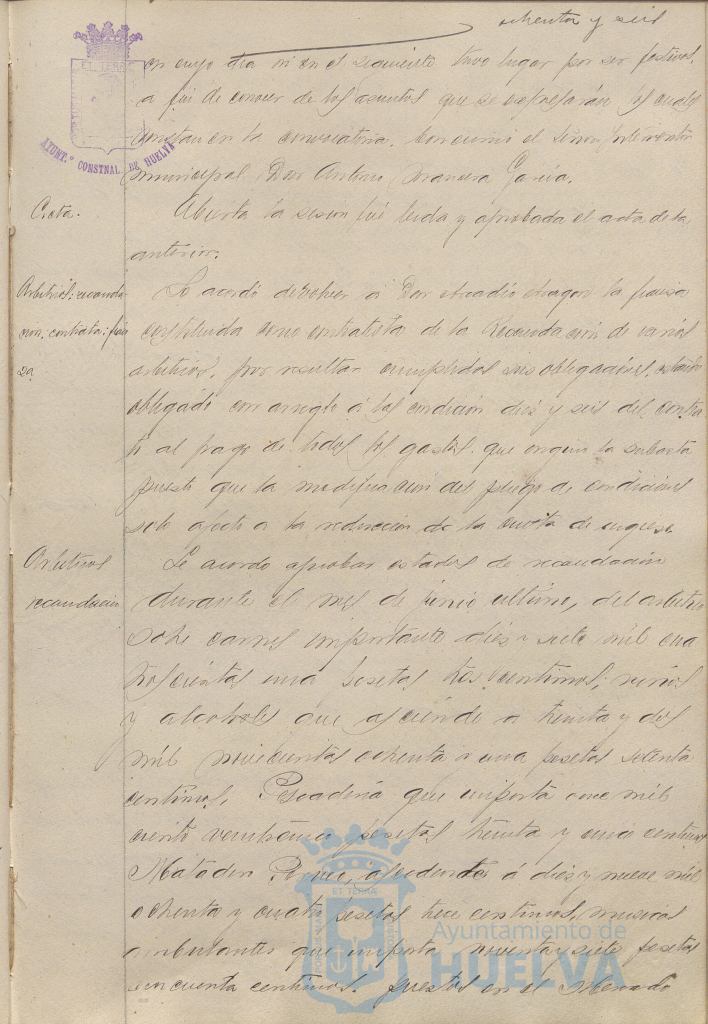 ochenta y seis
en cuyo dia ni en el siguiente tuvo lugar por ser festivos,
a fin de conocer de los asuntos que se expresarán los cuales
constan en la convocatoria. Concurrió el Señor Interventor
municipal, Don Antonio García.
EL TERRA
AYUNT.º CONSTNAL. DE HUELVA
Acta.
Abierta la sesion fué leida y aprobada el acta de la
anterior.
Arbitrios: recauda
cion, contrata: fian
za
Se acordó devolver á Don la fianza
constituida como contratista de la recaudacion de varios
arbitrios, por resultar cumplidas sus obligaciones, estando
obligado con arreglo á la condición diez y seis del contra
to al pago de todos los gastos que origine la subasta
puesto que la modificacion del pliego de condiciones
solo afecta a la reduccion de la cuota de ingreso.
Arbitrios
recaudacion
Se acordo aprobar estados de recaudación
durante el mes de Junio ultimo, del arbitrio
sobre carnes importante diez y siete mil cua
trocientas una pesetas tres centimos; vinos
y alcoholes que asciende a treinta y dos
mil novecientas ochenta y una pesetas setenta
centimos, Pescadería que importa once mil
ciento veintiuna pesetas treinta y un centimos
Matadero ascendente á diez y nueve mil
ochenta y cuatro pesetas trece centimos, musicos
ambulantes que importa noventa y siete pesetas
cincuenta centimos. puestos en el Mercado
EL TERRA
Ayuntamiento de
HUELVA